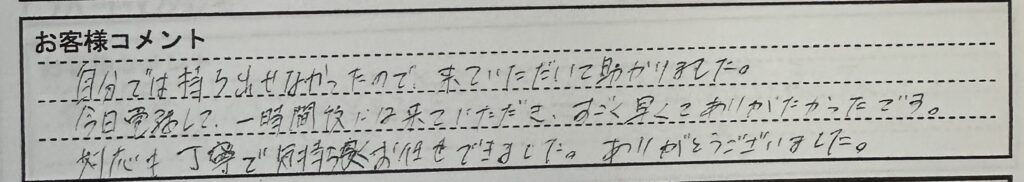 お客様コメント
自分では持ち出せなかったので、来ていただいて助かりました。
今日電話して、一時間後には来ていただき、すごく早くてありがたかったです。
対応も丁寧で気持ち良くお任せできました。ありがとうございました。